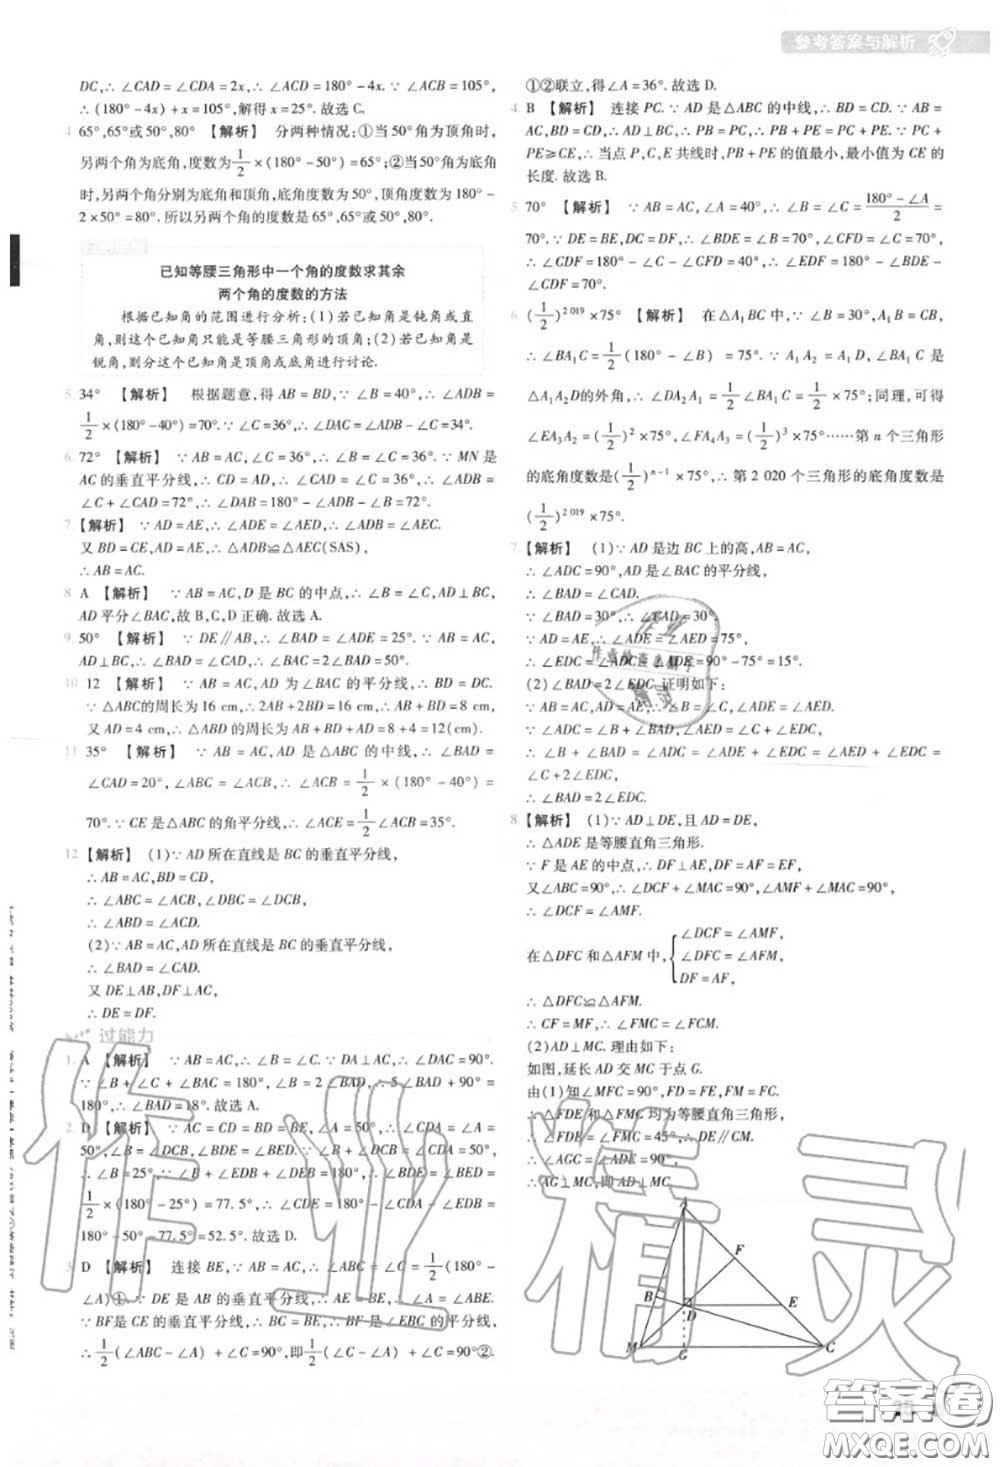 参考答案与解析
DC,∴∠CAD=∠CDA=2x,∴∠BAD=180°-4x,
∴(180°-4x)+x=105°,解得x=25°.故选C.
4 65°,65°或50°,80° 【解析】 分两种情况:①当50°角为顶角时,
另两个角为底角,度数为1/2×(180°-50°)=65°;②当50°角为底角
时,另两个角分别为底角和顶角,底角度数为50°,顶角度数为180°-
2×50°=80°.所以另两个角的度数是65°,65°或50°,80°.
已知等腰三角形中一个角的度数求其余
两个角的度数的方法
根据已知角的范围进行分析:(1)若已知角是钝角或直
角,则这个已知角只能是等腰三角形的顶角;(2)若已知角是
锐角,则分这个已知角是顶角或底角进行讨论.
5 34° 【解析】 根据题意,得AB=BD,∵∠B=40°,∴∠ADB=
1/2×(180°-40°)=70°.∵∠C=36°,∴∠DAC=∠ADB-∠C=34°.
6 72° 【解析】 ∵AB=AC,∠C=36°,∴∠B=∠C=36°.∵MN是
AC的垂直平分线,∴CD=AD,∴∠CAD=∠C=36°,∴∠ADB=
∠C+∠CAD=72°,∴∠DAB=180°-∠ADB-∠B=72°.
7 【解析】 ∵AD=AE,∴∠ADE=∠AED,∴∠ADB=∠AEC.
又BD=CE,AD=AE,∴△ADB≌△AEC(SAS),
∴AB=AC.
8 A 【解析】 ∵AB=AC,D是BC的中点,∴∠B=∠C,AD⊥BC,
AD平分∠BAC,故B,C,D正确.故选A.
9 50° 【解析】 ∵DE∥AB,∴∠BAD=∠ADE=25°.∵AB=AC,
AD⊥BC,∴∠BAD=∠CAD=25°,∴∠BAC=50°.
10 12 【解析】 ∵AB=AC,AD为∠BAC的平分线,∴BD=DC.
∵△ABC的周长为16 cm,∴2AB+2BD=16 cm,∴AB+BD=8 cm,
又AD=4 cm,∴△ABD的周长为AB+BD+AD=8+4=12(cm).
11 35° 【解析】 ∵AB=AC,AD是△ABC的中线,∴∠BAD=
∠CAD=20°,∠ABC=∠ACB,∴∠ACB=1/2×(180°-40°)=
70°.∵CE是△ABC的角平分线,∴∠ACE=1/2∠ACB=35°.
12 【解析】 (1)∵AD所在直线是BC的垂直平分线,
∴AB=AC,BD=CD,
∴∠ABC=∠ACB,∠DBC=∠DCB,
∴∠ABD=∠ACD.
(2)∵AB=AC,AD所在直线是BC的垂直平分线,
∴∠BAD=∠CAD.
又DE⊥AB,DF⊥AC,
∴DE=DF.
过能力
1 A 【解析】 ∵AB=AC,∴∠B=∠C.∵DA⊥AC,∴∠DAC=90°.
∵∠B+∠C+∠BAC=180°,∠BAD=∠B,∴5∠BAD+90°=
180°,∴∠BAD=18°.故选A.
2 D 【解析】 ∵AC=CD=BD=BE,∠A=50°,∴∠CDA=∠A=
50°,∠B=∠DCB,∠BDE=∠BED.∵∠B+∠DCB=∠CDA=50°,
∴∠B=25°,∵∠B+∠EDB+∠DEB=180°,∴∠BDE=∠BED=
1/2×(180°-25°)=77.5°,∴∠CDE=180°-∠CDA-∠EDB=
180°-50°-77.5°=52.5°.故选D.
3 D 【解析】 连接BE,∵AB=AC,∴∠ABC=∠C=1/2(180°-
∠A)①.∵DE是AB的垂直平分线,∴AE=BE,∴∠A=∠ABE.
∵BF是CE的垂直平分线,∴BC=BE,∴BF是∠EBC的平分线,
∴1/2(∠ABC-∠A)+∠C=90°,即1/2(∠C-∠A)+∠C=90°②.
①②联立,得∠A=36°.故选D.
4 B 【解析】 连接PC.∵AD是△ABC的中线,∴BD=CD.∵AB=
AC,BD=CD,∴AD⊥BC,∴PB=PC,∴PB+PE=PC+PE.∵PC+
PE≥CE,∴当点P,C,E共线时,PB+PE的值最小,最小值为CE的
长度.故选B.
5 70° 【解析】 ∵AB=AC,∠A=40°,∴∠B=∠C=(180°-∠A)/2=
70°.∵DE=BE,DC=DF,∴∠B=∠EDB=70°,∠CFD=∠C=70°,
∴∠CDF=180°-∠CFD-∠C=40°,∴∠EDF=180°-∠BDE-
∠CDF=70°.
6 (1/2)^2 019×75° 【解析】 在△A₁BC中,∵∠B=30°,A₁B=CB,
∴∠BA₁C=1/2(180°-∠B)=75°.∵A₁A₂=A₁D,∠BA₁C是
△A₁A₂D的外角,∴∠DA₂A₁=1/2∠BA₁C=1/2×75°;同理,可得
∠EA₃A₂=(1/2)²×75°,∠FA₄A₃=(1/2)³×75°……第n个三角形
的底角度数是(1/2)^n-1×75°,∴第2 020个三角形的底角度数是
(1/2)^2 019×75°.
7 【解析】 (1)∵AD是边BC上的高,AB=AC,
∴∠ADC=90°,AD是∠BAC的平分线,
∴∠BAD=∠CAD.
∵∠BAD=30°,∴∠EAD=30°.
∵AD=AE,∴∠ADE=∠AED=75°,
∴∠EDC=∠ADC-∠ADE=90°-75°=15°.
(2)∠BAD=2∠EDC.证明如下:
∵AB=AC,AD=AE,∴∠B=∠C,∠ADE=∠AED.
∵∠ADC=∠B+∠BAD,∠AED=∠C+∠EDC,
∴∠B+∠BAD=∠ADC=∠ADE+∠EDC=∠AED+∠EDC=
∠C+2∠EDC,
∴∠BAD=2∠EDC.
8 【解析】 (1)∵AD⊥DE,且AD=DE,
∴△ADE是等腰直角三角形.
∵F是AE的中点,∴DF⊥AE,DF=AF=EF,
又∠ABC=90°,∴∠DCF+∠MAC=90°,∠AMF+∠MAC=90°,
∴∠DCF=∠AMF.
在△DFC和△AFM中,
∠DCF=∠AMF,
∠DFC=∠AFM,
DF=AF,
∴△DFC≌△AFM.
∴CF=MF,∴∠FMC=∠FCM.
(2)AD⊥MC.理由如下:
如图,延长AD交MC于点G.
由(1)知∠MFC=90°,FD=FE,FM=FC,
∴△FDE和△FMC均为等腰直角三角形,
∴∠FDE=∠FMC=45°,∴DE∥CM,
∴∠AGC=∠ADE=90°,
∴AG⊥MC,即AD⊥MC.
A
F
B
D
E
M
G
C
作业精灵
答案圈
MXQE.COM